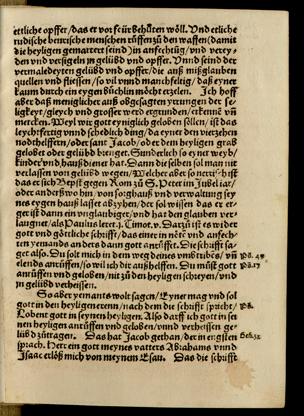 ettliche opffer/das er vor feür behůtten wöll. Vnd etliche
iudische bentische menschen rüffen zů den waffen/damit
die heyligen gemartert seind) in anfechtũg/vnd verey-
den vnd versigeln in gelübd vnd opffer. Vnnd seind der
vermaledeyten gelübd vnd opffer/die auß mißglauben
quellen vnd fliessen/so vil vnnd manchfeltig/daß eyner
kaum durch ein eygen büchlin möcht erzelen. Ich hoff
aber daß meniglicher auß obgesagten yrtungen der se-
ligkeyt/gleych vnd grosser werd ergründen/erkennẽ vñ
mercken. Weyl wir gott eyniglich geloben sollen/ist das
leychtfertig vnnd schedlich ding/da eyner den vierzehen
nodthelffern/oder sant Jacob/oder dem heyligen grab
gelobet oder gelübd bringet. Sunderlich so eyner weyb/
kinder vnd haußdiener hat. Dann die selben sol man nit
verlassen von gelübd wegen/Welcher aber so
das er sich Bepst gegen Rom zů S. Peter im Jubel iar/
oder anderßwo hin/von sorghauß vnd verwaltung sey-
nes eygen hauß lasset abzyhen/der sol wissen das er er-
ger ist dann ein vnglaubiger/vnd hat den glauben ver-
laugnet/als Paulus leret.1.Timot.v. Darzů ist es wider
gott vnd götliche schrifft/das einer in nöte vnd anfech-
ten yemands anders dann gott anrůffet. Die schrifft sa-
get also. Du solt mich in dem weg deines vmbtrůbs/vñ
elends anrůffen/so wil ich dich außhelffen. Du můst gott
anrůffen vnd geloben/nit zů den heyligen schreyen/vnd
in gelübd verheissen.
So aber yemants wolt sagen/Eyner mag vnd sol
gott in den heyligen erenn/nach dem die schrifft spricht/
Lobent gott in seynen heyligen. Also darff ich gott in sei
nen heyligen anrůffen vnd geloben/vnnd verheissen ge-
lübd zůtragen. Das hat Jacob gethan/der im
sprach. Herr ein gott meynes vatters Abrahams vnnd
Isaac erlöß mich von meynem Esau. Das die schrifft